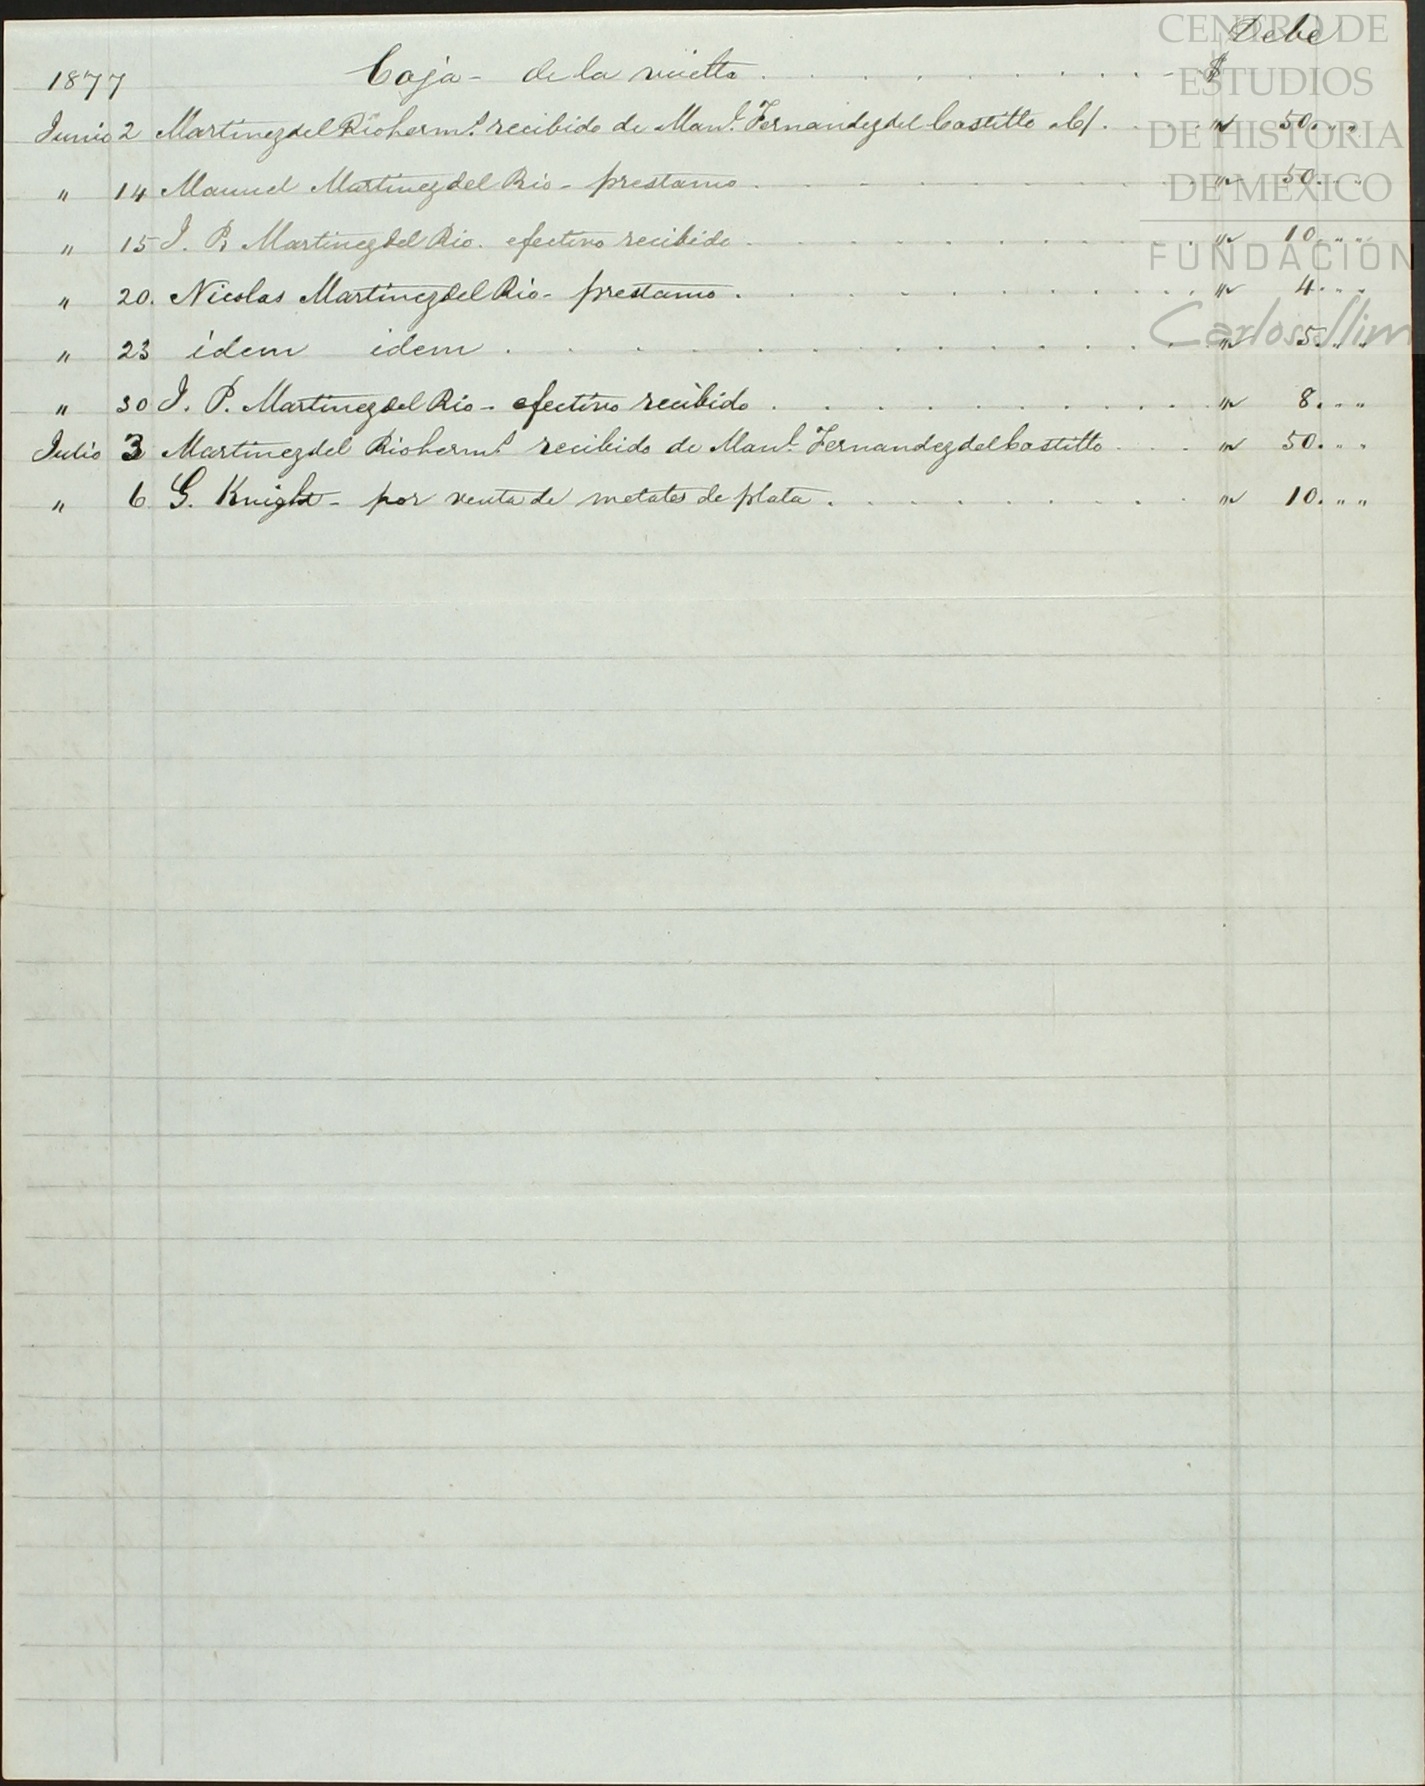 CENTRO DE
ESTUDIOS
DE HISTORIA
DE MEXICO
FUNDACIÓN
Carlos Slim
Debe
1877 Caja - de la vuelta . . . . . . . . . . . $
Junio 2 Martinez del Rio herms. recibido de Manl. Fernandez del Castillo . . . . " 50. " "
" 14 Manuel Martinez del Rio - prestamo . . . . . . . . . . " 50. " "
" 15 J. P. Martinez del Rio. efectivo recibido . . . . . . . . . . " 10. " "
" 20. Nicolas Martinez del Rio - prestamo . . . . . . . . . . " 4. " "
" 23 idem idem . . . . . . . . . . . . . " 5. " "
" 30 J. P. Martinez del Rio - efectivo recibido . . . . . . . . . . " 8. " "
Julio 3 Martinez del Rio herms. recibido de Manl. Fernandez del Castillo . . . " 50. " "
" 6 G. Knight - por venta de metates de plata . . . . . . . . " 10. " "